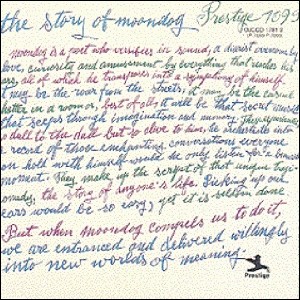 the story of moondog Prestige 1099
Moondog is a poet who versifies in sound, a diarist overcome by
love, curiosity and amusement by everything that reaches his
ears, all of which he transposes into a symphony of himself.
it may be the roar from the streets, it may be the casual
in a womb or, best of all, it will be that secret music
that seeps through imagination and memory.
to the but so alive to him, he orchestrates into
a record of those enchanting conversations everyone
can hold with himself would he only listen for a single
moment. They make up the script of that unique tragi-
comedy, the story of anyone's life. Pricking up one's
ears would be so easy; yet it is seldom done.
But when moondog compels us to do it,
we are entranced and delivered willingly
into new worlds of meaning.
Prestige